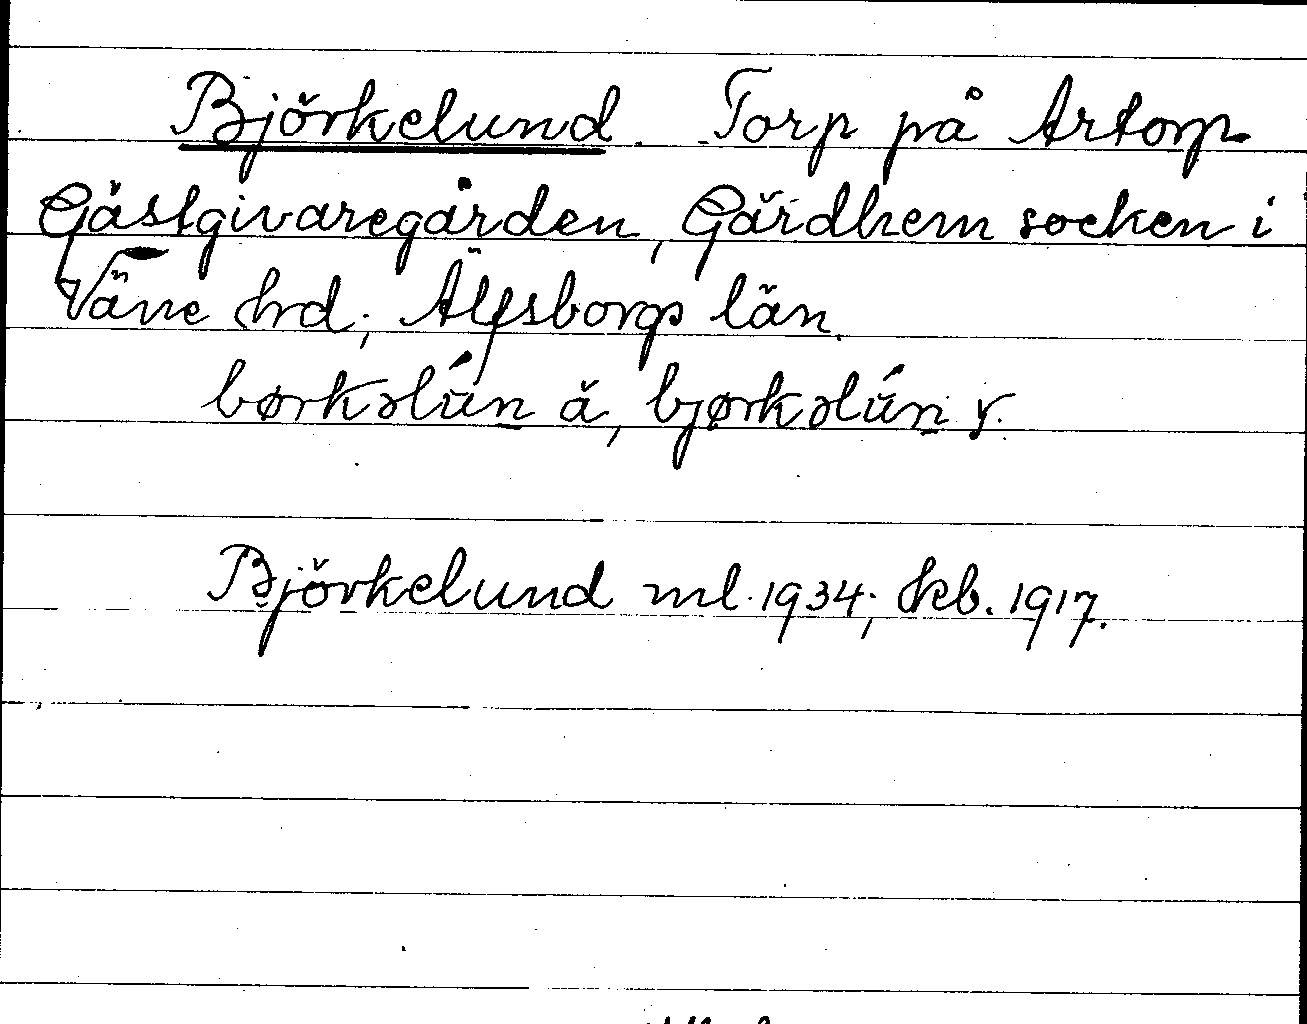 Björkelund. Torp på Artorp
Gästgivaregården, Gärdhem socken i
Väne hrd; Älfsborgs län.
børkəlún ä, bjørkəlún y.
Björkelund ml. 1934; kb. 1917.